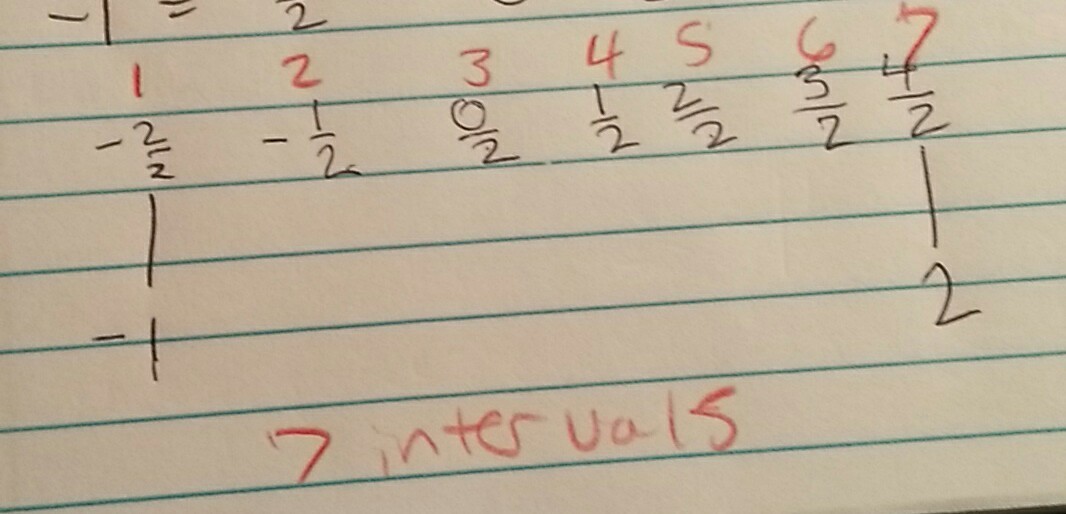 -1 = /2
1 2 3 4 5 6 7
-2/2 -1/2 0/2 1/2 2/2 3/2 4/2
-1 2
7 intervals